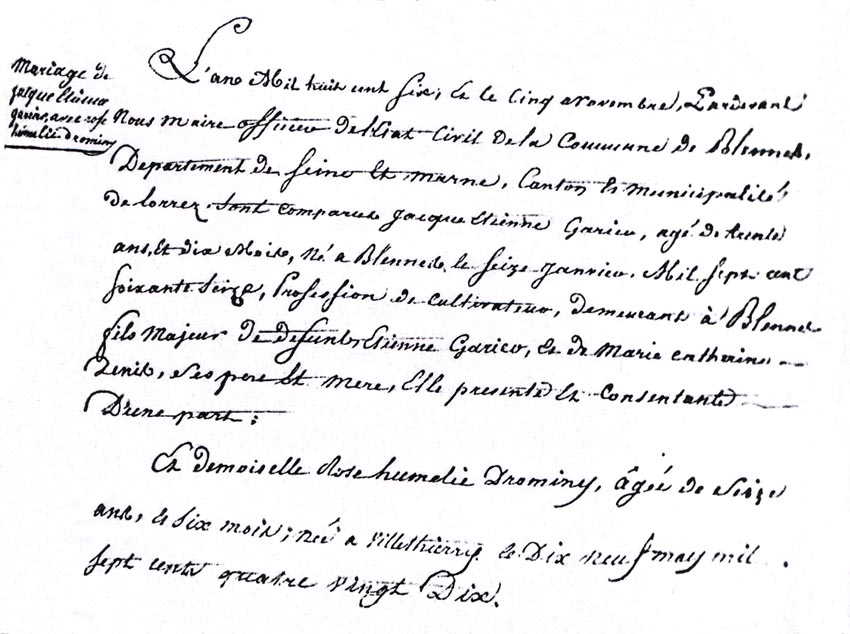 Mariage de
jacque Etienne
garico, avec rose
humelie Drominy
L'an Mil huit cent six, Et le Cinq Novembre, Pardevant
Nous maire officier de l'Etat Civil de la Commune de Blennes,
Departement de Seine Et marne, Canton Et municipalité
de lorrez Sont comparus Jacque Etienne Garico, agé de trente
ans, Et dix Mois, Né a Blennes, le Seize Janvier, Mil Sept cent
Soixante Seize, Profession de Cultivateur, demeurant à Blennes
fils Majeur de defunt Etienne Garico, Et de Marie catherine
Denis, Ses pere Et mere, Elle presente Et Consentante
D'une part :
Et demoiselle Rose humelie Drominy, âgée de Seize
ans, Et Six mois ; née a Villethierry le Dix neuf may mil
Sept cents quatre Vingt Dix.